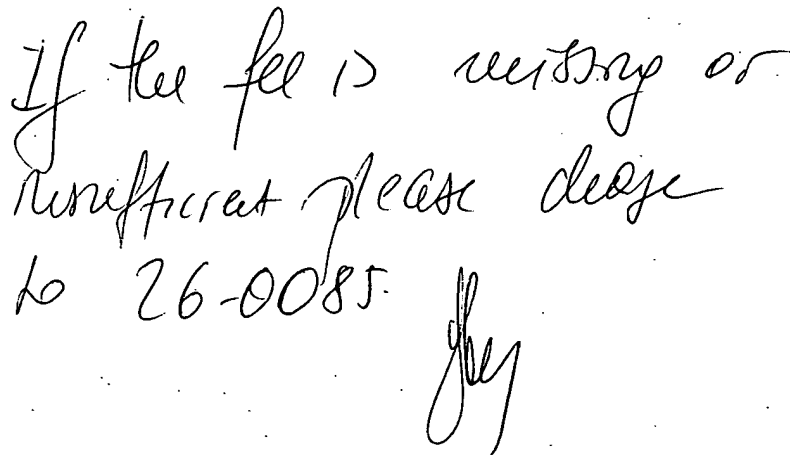 If the fee is missing or
insufficient please charge
to 26-0085.